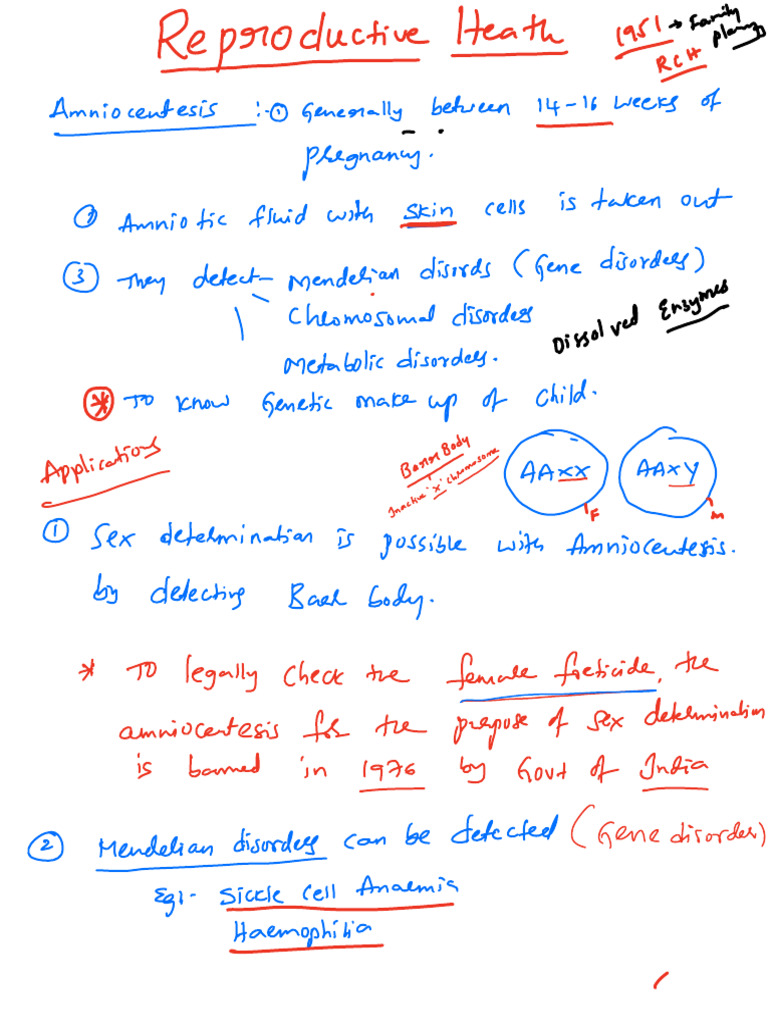 Reproductive Heath
1951 → Family
planing
RCH
Amniocentesis :- ① Generally between 14-16 weeks of
pregnancy.
② Amniotic fluid with skin cells is taken out
③ They detect - Mendelian disords (Gene disorders)
Chromosomal disorders
Metabolic disorders.
Dissolved Enzymes
* To know Genetic make up of child.
Applications
Barr Body
Inactive 'x' chromosome
AAXX
F
AAXY
M
① Sex determination is possible with Amniocentesis.
by detecting Barr body.
* To legally check the female foeticide, the
amniocentesis for the prepose of sex determination
is banned in 1976 by Govt of India
② Mendelian disorders can be detected (Gene disorder)
Eg:- Sickle cell Anaemia
Haemophilia